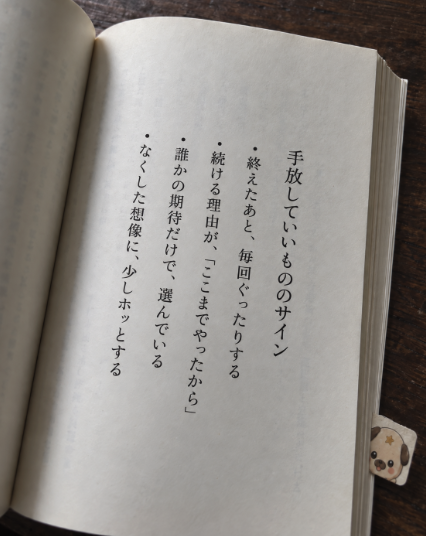 手放していいもののサイン
・終えたあと、毎回ぐったりする
・続ける理由が、「ここまでやったから」
・誰かの期待だけで、選んでいる
・なくした想像に、少しホッとする